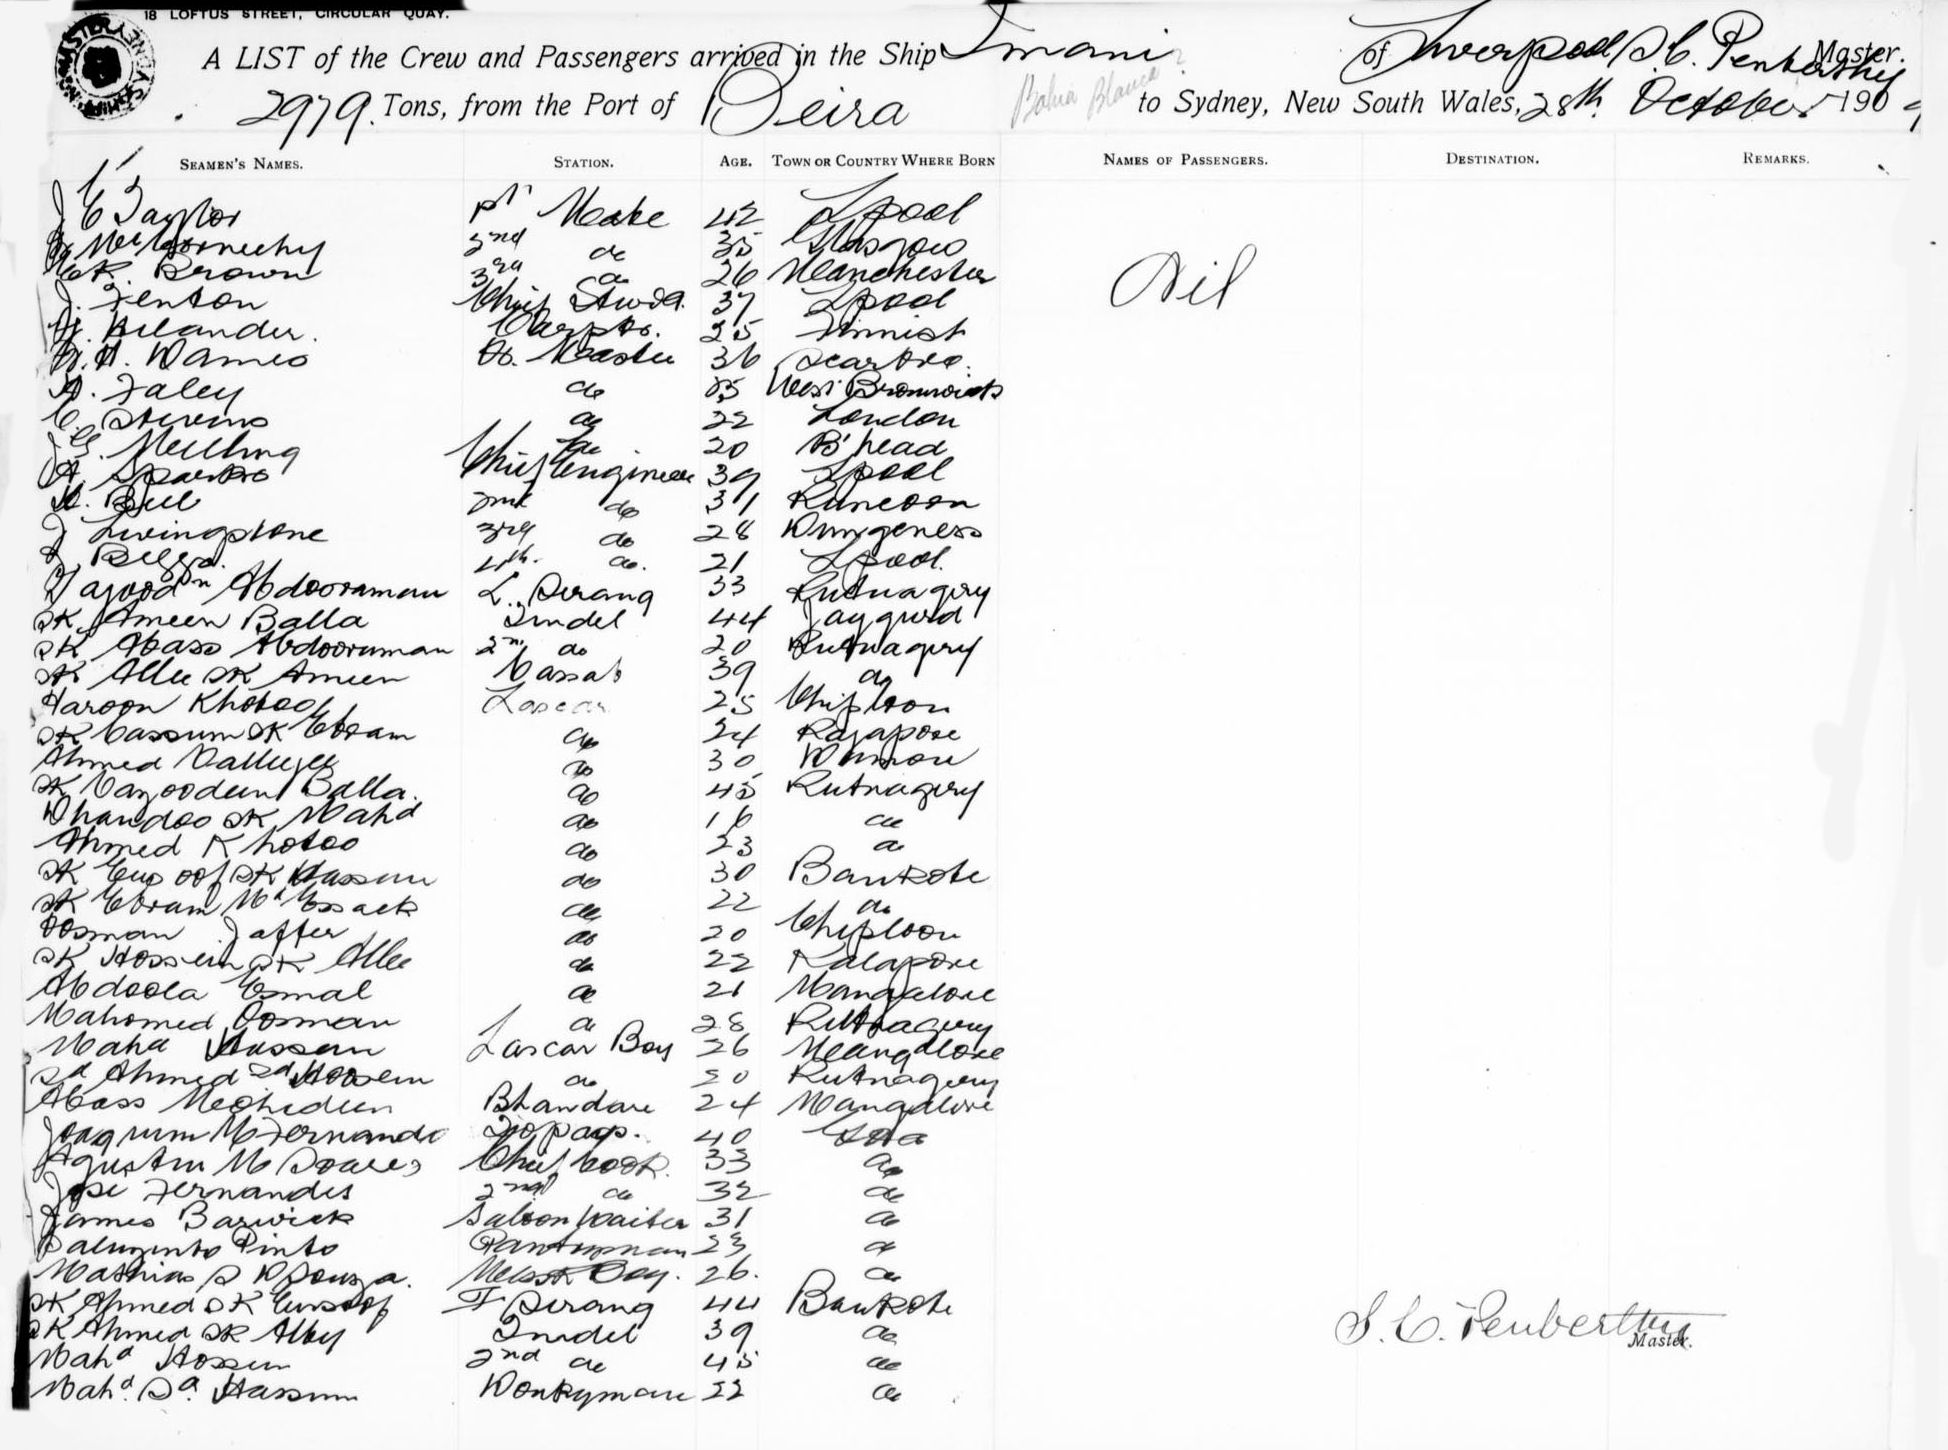 18 LOFTUS STREET, CIRCULAR QUAY.
A LIST of the Crew and Passengers arrived in the Ship Imani of Liverpool, S. C. Penberthy Master.
2979 Tons, from the Port of Beira Bahia Blanca? to Sydney, New South Wales, 28th October 190
SEAMEN'S NAMES. STATION. AGE. TOWN OR COUNTRY WHERE BORN NAMES OF PASSENGERS. DESTINATION. REMARKS.
J C Taylor 1st Mate 42 Lpool
2nd do 35 Glasgow
Brown 3rd do 26 Manchester Nil
J. Fenton Chief Stwd. 37 Lpool
Carptr. 25
36
A. Faley do West Bromwich
C. Stevens do 22 London
J. G. Melling do 20 B'head
A. Sparks Chief Engineer 39 Lpool
Bell 2nd do 31 Runcorn
J Livingstone 3rd do 28 Dungeness
J Beggs. 4th. do. 21 Lpool.
Abdooraman Serang 33 Rutnagery
SK Ameen Balla Tindel 44 Jaygurd
SK Abass Abdooraman 2nd do 20 Rutnagery
SK Allee SK Ameen Cassab 39 do
Haroon Khotoo Lascar 25 Chiploon
SK Cassum SK Ebram do 24 Rajapore
Ahmed do 30
SK Balla. do 45 Rutnagery
Dhandoo SK Mahd do 16 do
Ahmed Khotoo do 23 do
SK Eusoof SK Hassum do 30 Bankote
SK Ebram Md Essack do 22 do
Oosman Jaffer do 20 Chiploon
SK Hossein SK Allee do 22
Abdoola Esmal do 21 Mangalore
Mahomed Oosman do 28 Rutnagery
Mahd Hussein Lascar Boy 26 Mangalore
Sd Ahmed Sd Hossein do 20 Rutnagery
Abass Mechideen Bhandare 24 Mangalore
Joaquim M Fernandes Topass. 40 Goa
Agustin M Soares Chief Cook. 33 do
Jose Fernandes 2nd do 32 do
James Barwick Saloon Waiter 31 do
Pinto Pantryman 23 do
Mathias S D'Souza. Messr Boy. 26. do
SK Ahmed SK Eusoof F Serang 44 Bankote
SK Ahmed SK Ally Tindel 39 do S. C. Penberthy
Master.
Mahd Hossein 2nd do 45 do
Mahd. Sd. Hassum Donkyman 22 do